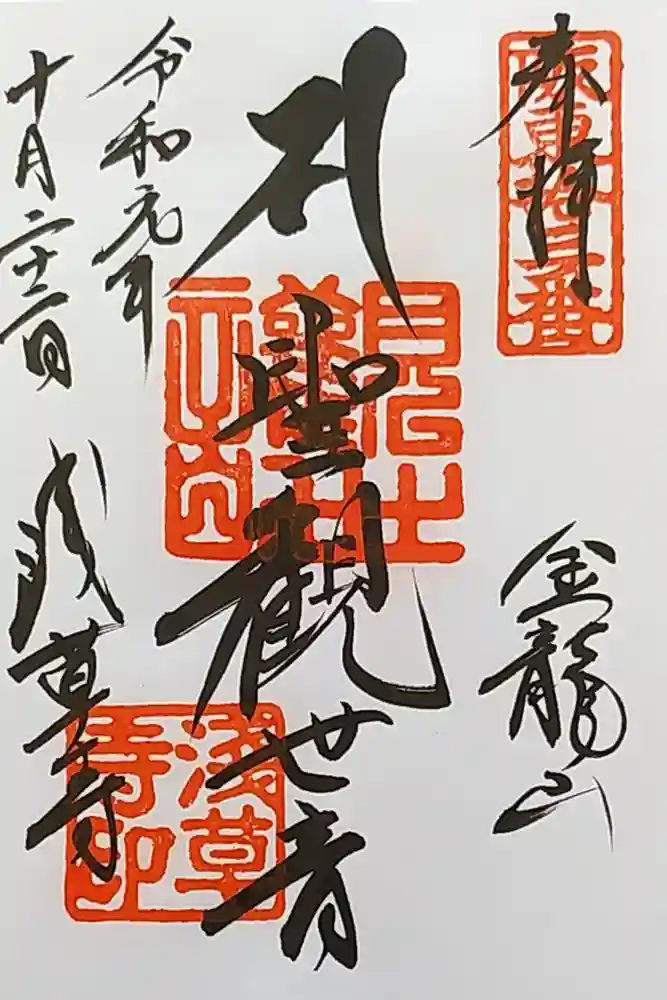 奉拝
坂東十三番
金龍山
聖観世音
浅草寺印
令和元年
十月二十二日
浅草寺